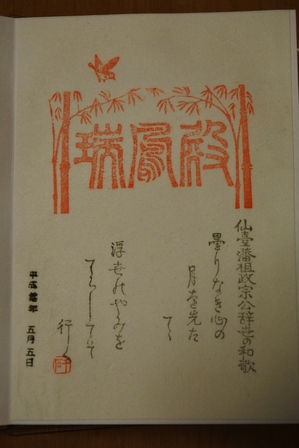 瑞鳳殿
仙臺藩祖政宗公辞世の和歌
曇りなき心の
月を先た
てゝ
浮世のやみを
てらしてそ
行く
平成
年
五月五日